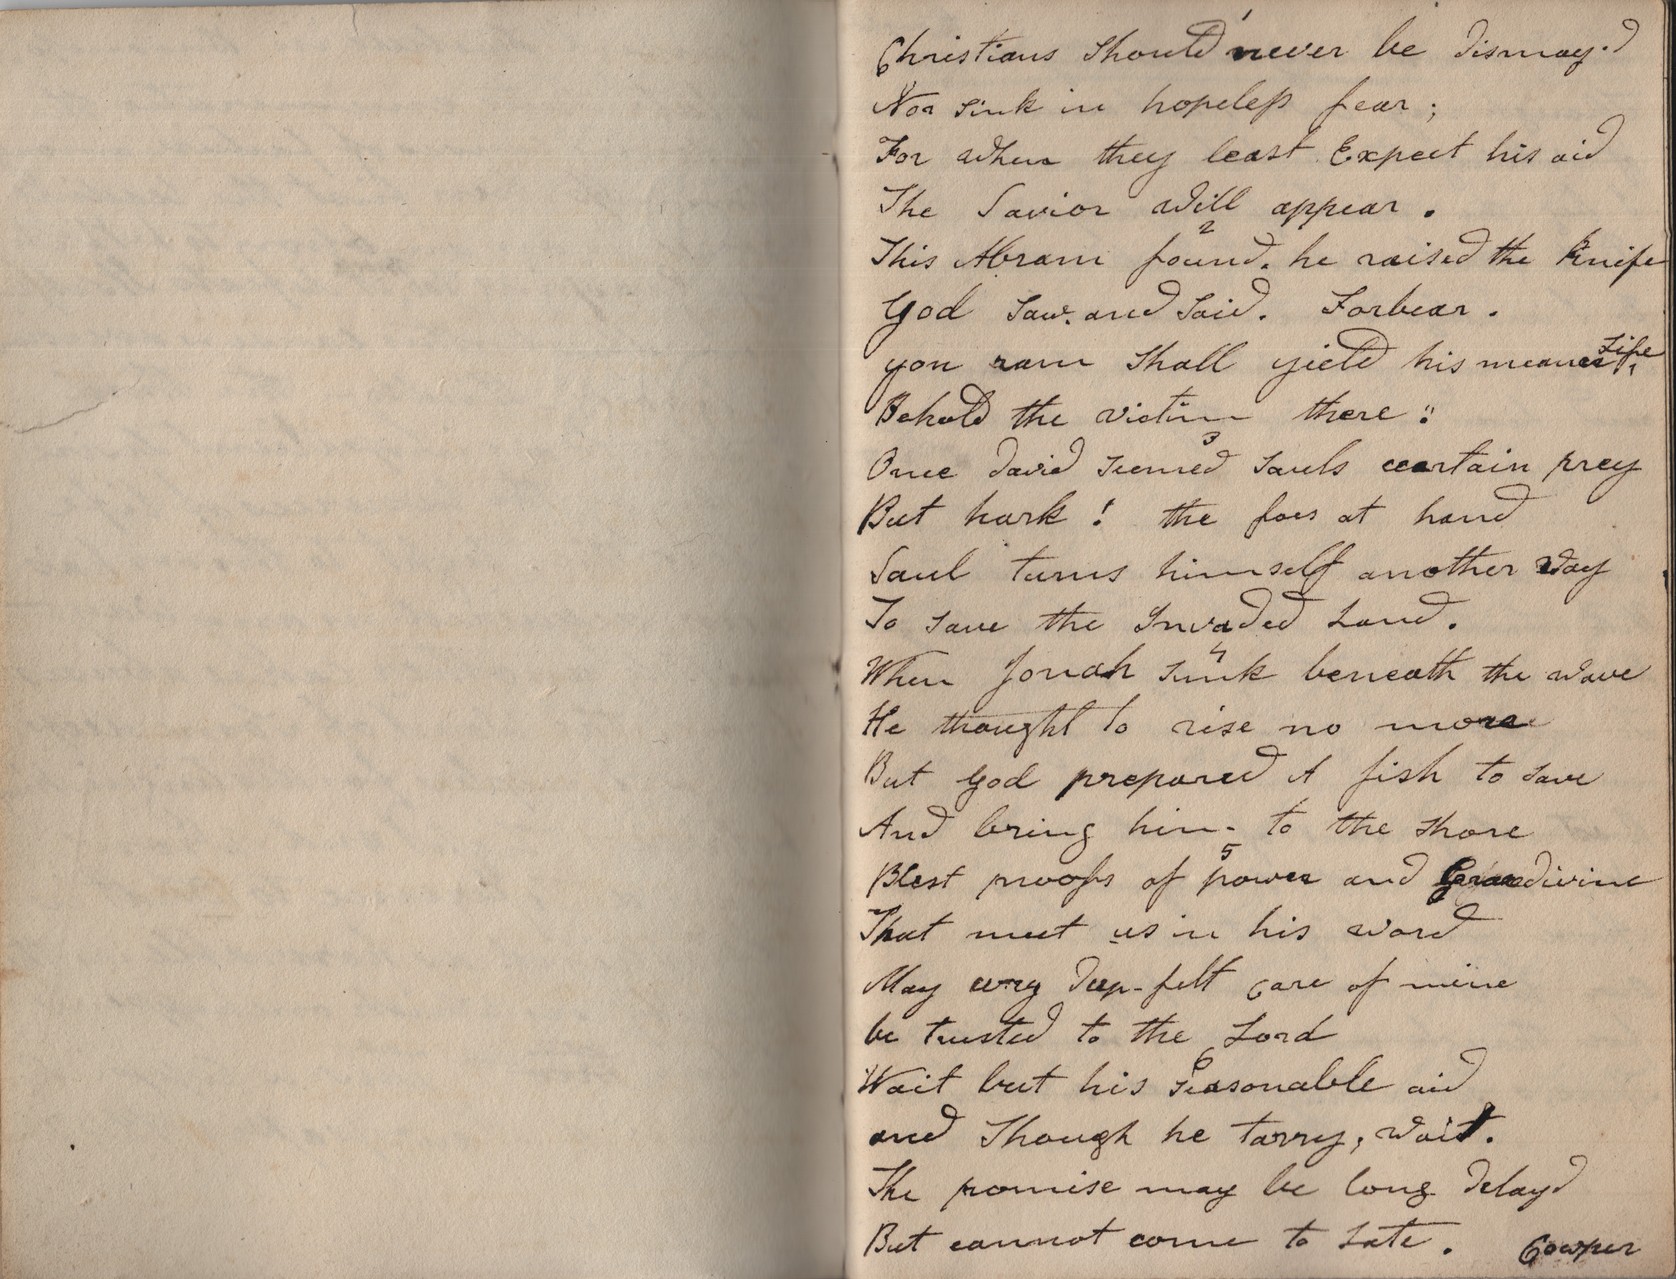 1
Christians should never be dismay.d
Nor sink in hopeless fear ;
For when they least Expect his aid
The Savior will appear .
2
This Abram found. he raised the knife
God saw. and said. Forbear .
yon ram shall yield his meaner Life,
Behold the victim there :
3
Once david seemed Sauls certain prey
But hark ! the foes at hand
Saul turns himself another way
To save the Invaded Land .
4
When Jonah sunk beneath the wave
He thought to rise no more
But God prepared A fish to save
And bring him to the shore
5
Blest proofs of power and Grace divine
That meet us in his word
May every deep-felt care of mine
be trusted to the Lord
6
Wait but his seasonable aid
and Though he tarry, wait.
The promise may be long delayd
But cannot come to late . Cowper